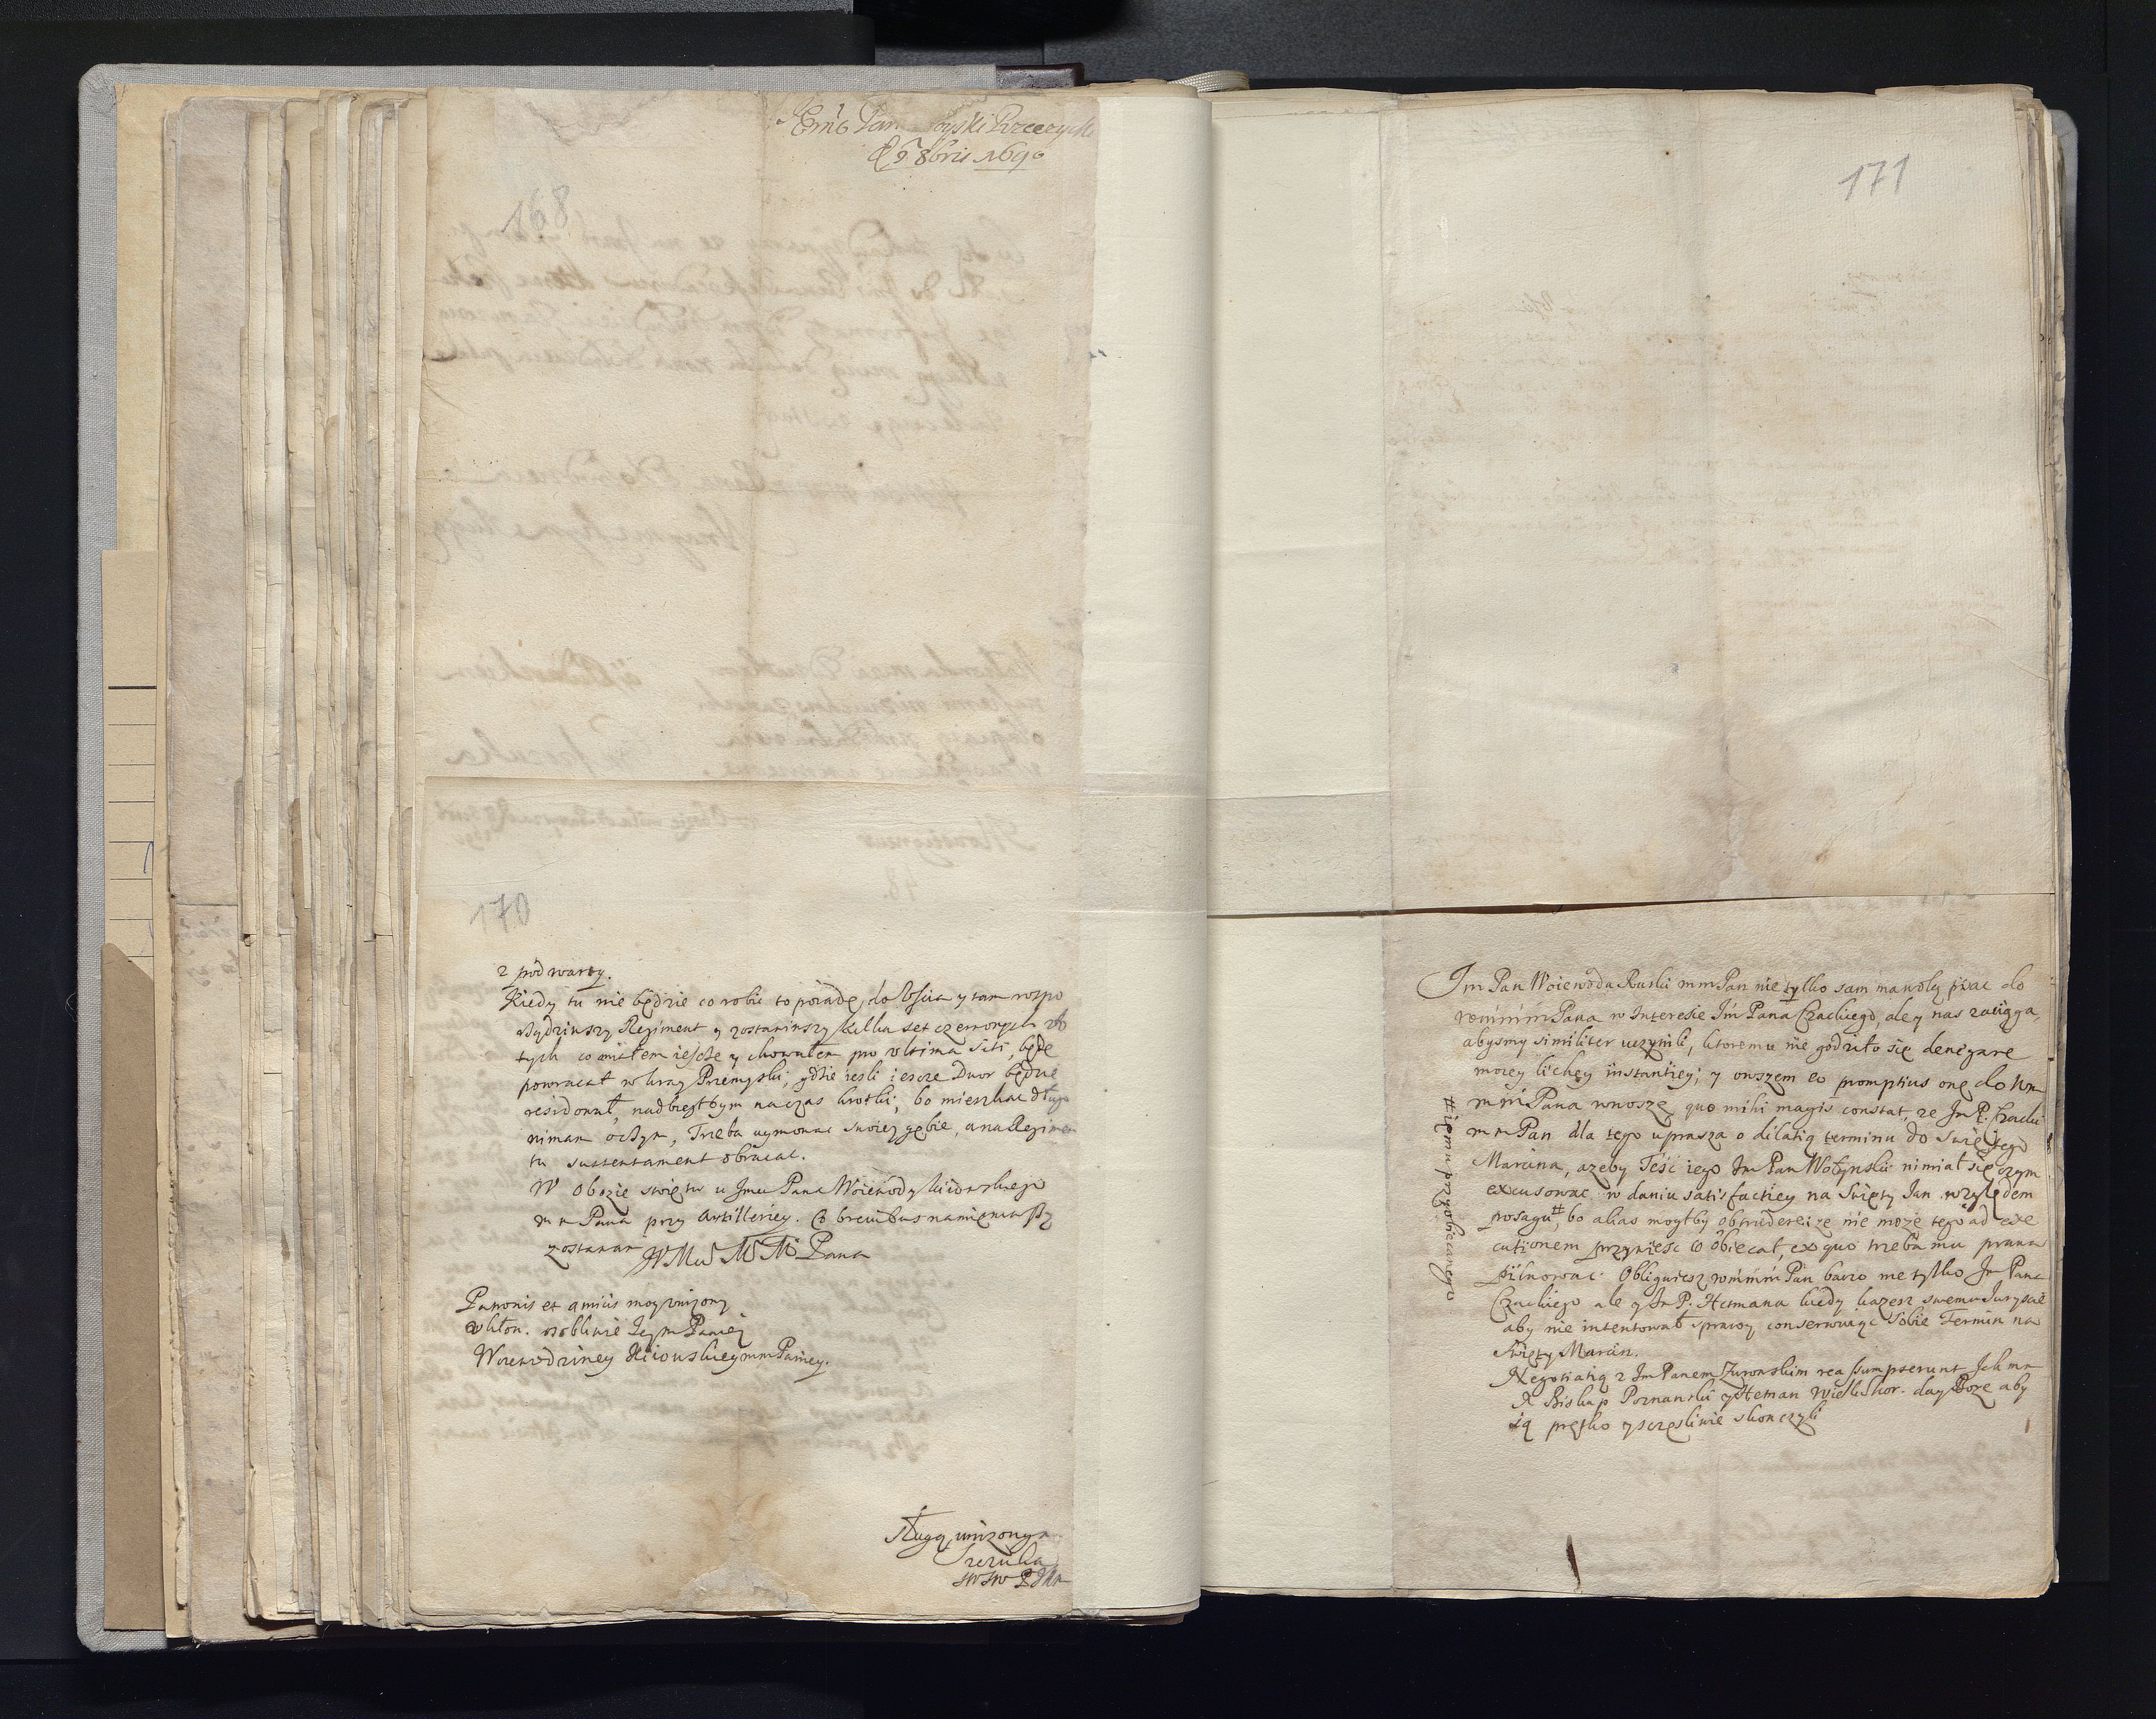 Pan
8bris 1690
168
170
z pod warty.
Kiedy tu nie będzie co robic to poiadę do Uscia y tam rozpo
Regiment y zostawiwszy kilka set czerwonych zło
tych co miałem ieszcze y chowałem pro ultima siti, będę
powracał w kray Przemyski, gdzie iesli ieszcze Dwor będzie
residował, nadbiegłbym na czas krotki, bo mieszkac długo
nimam o czym, Trzeba uymowac swoiey gębie, a na Regimen
tu sustentament obracac.
W Obozie u Jmci Pana Woiewody Kiiowskiego
m m Pana przy Artilleriey. Co brevibus namieniwszy
zostawam WMM M M Pana
Patronis et amicis moy unizony
ukłon. osobliwie Jeym Paniey
Woiewodziney Kiiowskiey mm Paniey.
Sługą unizonym
Szczuka
171
Jm Pan Woiewoda Ruski mm Pan nie tylko sam ma wolą pisac do
wmmm Pana w Interesie Jm Pana Czackiego, ale y nas zaciąga,
abysmy similiter uczynili, ktoremu nie godziło się denegare
moiey lichey instantiey; y owszem eo promptius onę do Wm
m m Pana wnoszę quo mihi magis constat, ze Jm P. Czacki
m m Pan dla tego uprasza o dilatią terminu do Swiętego
Marcina, azeby Teść iego Jm Pan Wołynski nimiał się czym
excusowac w daniu satisfactiey na Swięty Jan względem
posagu #, bo alias mogłby obtrudere ze nie moze tego ad exe
cutionem przyniesc co obiecał, ex quo trzeba mu prawa
pilnowac. Obliguiesz wmmm Pan barzo nie tylko Jm Pana
Czackiego ale y Jm P. Hetmana kiedy kazesz swemu Juryscie
aby nie intentował sprawy conserwuiąc sobie Termin na
Swięty Marcin.
Negotiatią z Jm Panem Zurowskim reassumpserunt Ich mm
X Biskup Poznanski y Hetman Wielki Kor. day Boze aby
ią prętko y szczęsliwie skonczyli
# iemu przyobiecanego